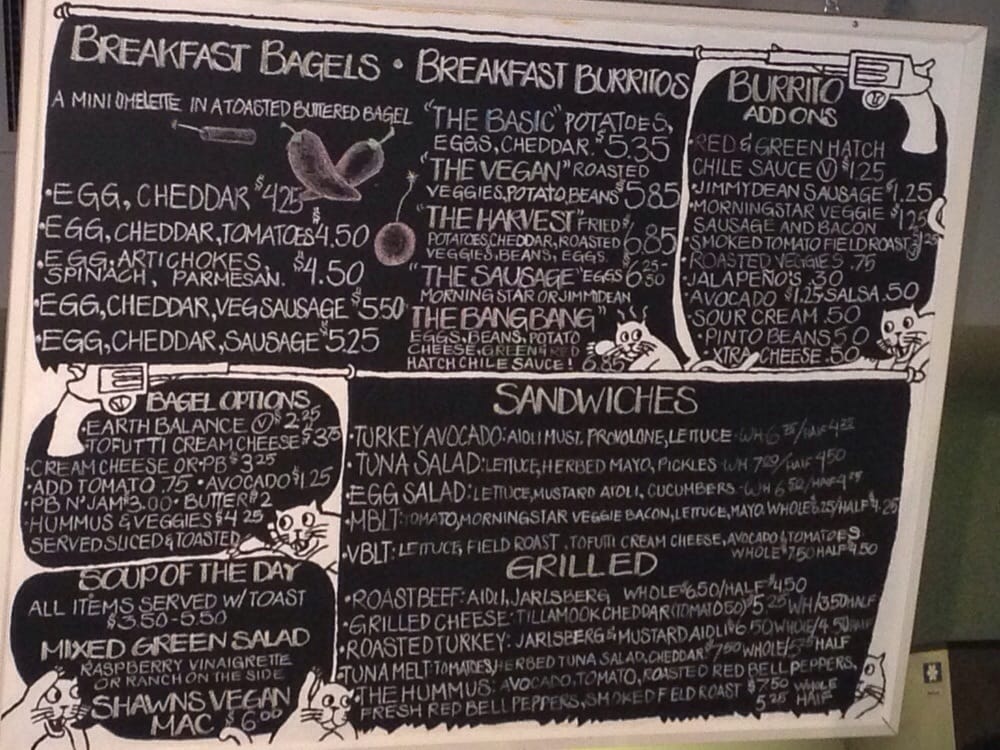 BREAKFAST BAGELS • BREAKFAST BURRITOS
A MINI OMELETTE IN A TOASTED BUTTERED BAGEL
• EGG, CHEDDAR $4.25
• EGG, CHEDDAR, TOMATOES $4.50
• EGG, ARTICHOKES,
SPINACH, PARMESAN. $4.50
• EGG, CHEDDAR, VEG SAUSAGE $5.50
• EGG, CHEDDAR, SAUSAGE $5.25
"THE BASIC" POTATOES,
EGGS, CHEDDAR. $5.35
"THE VEGAN" ROASTED
VEGGIES, POTATO, BEANS $5.85
"THE HARVEST" FRIED
POTATOES, CHEDDAR, ROASTED $6.85
VEGGIES, BEANS, EGGS.
"THE SAUSAGE" EGGS 6.25-
MORNING STAR OR JIMMY DEAN 6.50
THE BANG BANG"
EGGS, BEANS, POTATO
CHEESE, GREEN & RED
HATCH CHILE SAUCE! 6.85
BURRITO
ADD ONS
• RED & GREEN HATCH
CHILE SAUCE V $1.25
• JIMMY DEAN SAUSAGE $1.25
• MORNINGSTAR VEGGIE
SAUSAGE AND BACON $1.25
• SMOKED TOMATO FIELD ROAST
• ROASTED VEGGIES .75
• JALAPEÑO'S .30
• AVOCADO $1.25 SALSA .50
• SOUR CREAM .50
• PINTO BEANS 50
• XTRA CHEESE .50
BAGEL OPTIONS
• EARTH BALANCE V $2.25
• TOFUTTI CREAM CHEESE $3.75
• CREAM CHEESE OR PB $3.25
• ADD TOMATO .75 • AVOCADO $1.25
• PB N' JAM $3.00 • BUTTER $2
• HUMMUS & VEGGIES $4.25
SERVED SLICED & TOASTED
SOUP OF THE DAY
ALL ITEMS SERVED W/ TOAST
$3.50-5.50
MIXED GREEN SALAD
RASPBERRY VINAIGRETTE
OR RANCH ON THE SIDE
SHAWNS VEGAN
MAC $6.00
SANDWICHES
• TURKEY AVOCADO: AIOLI MUST. PROVOLONE, LETTUCE - WH 6 /HALF
• TUNA SALAD: LETTUCE, HERBED MAYO, PICKLES WH /HALF 4.50
• EGG SALAD: LETTUCE, MUSTARD AIOLI, CUCUMBERS - WH 6.50/HALF
• MBLT: TOMATO, MORNINGSTAR VEGGIE BACON, LETTUCE, MAYO. WHOLE 6.25/HALF 4.25
• VBLT: LETTUCE, FIELD ROAST, TOFUTTI CREAM CHEESE, AVOCADO & TOMATOES
WHOLE 7.50 HALF 4.50
GRILLED
• ROAST BEEF: AIOLI, JARLSBERG WHOLE $6.50/HALF $4.50
• GRILLED CHEESE: TILLAMOOK CHEDDAR (TOMATO 50) $5.25 WH/3.50 HALF
• ROASTED TURKEY: JARLSBERG & MUSTARD AIOLI $6.50 WHOLE/4.50 HALF
TUNA MELT: TOMATOES, HERBED TUNA SALAD, CHEDDAR $7.50 WHOLE/5.25 HALF
• THE HUMMUS: AVOCADO, TOMATO, ROASTED RED BELL PEPPERS,
FRESH RED BELL PEPPERS, SMOKED FIELD ROAST $7.50 WHOLE
5.25 HALF